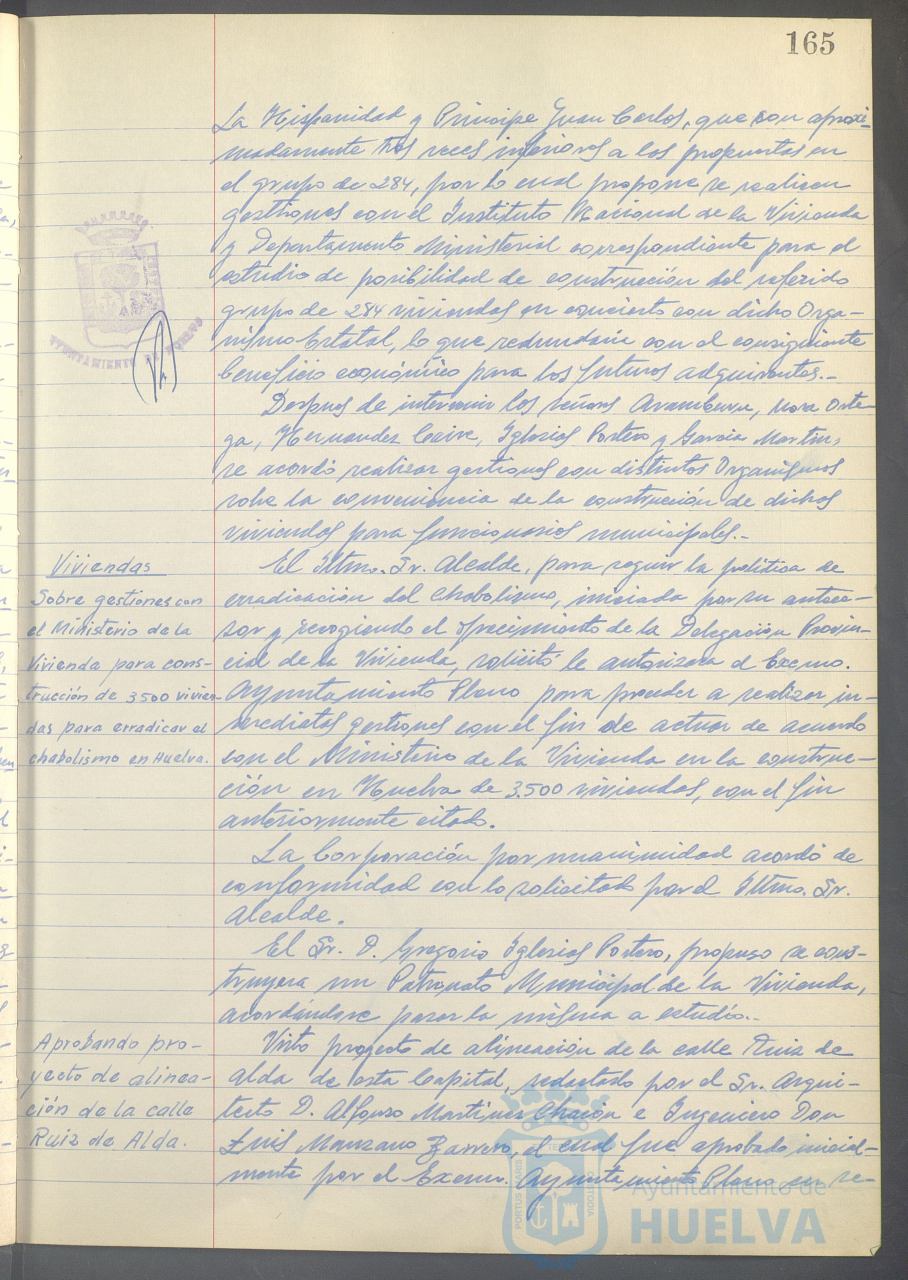 165
La Hispanidad y Principe Juan Carlos, que son aproxi-
madamente tres veces inferiores a los propuestos en
el grupo de 284, por lo cual propone se realicen
gestiones con el Instituto Nacional de la Vivienda
y Departamento Ministerial correspondiente para el
estudio de posibilidad de construcción del referido
grupo de 284 viviendas en concierto con dicho Orga-
nismo Estatal, lo que redundaría con el consiguiente
beneficio económico para los futuros adquirentes.-
Despues de intervenir los señores Aramburu, Mora Orte-
ga, Hernandez Caire, Iglesias Portero y Garcia Martin,
se acordó realizar gestiones con distintos Organismos
sobre la conveniencia de la construcción de dichas
viviendas para funcionarios municipales.-
Viviendas
Sobre gestiones con
el Ministerio de la
Vivienda para cons-
trucción de 3500 vivien
das para erradicar el
chabolismo en Huelva.
El Iltmo. Sr. Alcalde, para seguir la política de
erradicación del chabolismo, iniciada por su antece-
sor y recogiendo el ofrecimiento de la Delegación Provin-
cial de la Vivienda, solicitó le autorizara el Excmo.
Ayuntamiento Pleno para proceder a realizar in-
mediatas gestiones con el fin de actuar de acuerdo
con el Ministerio de la Vivienda en la construc-
ción en Huelva de 3.500 viviendas, con el fin
anteriormente citado.
La Corporación por unanimidad acordó de
conformidad con lo solicitado por el Iltmo. Sr.
Alcalde.
El Sr. D. Gregorio Iglesias Portero, propuso se cons-
truyera un Patronato Municipal de la Vivienda,
acordándose pasar la misma a estudio.-
Aprobando pro-
yecto de alinea-
ción de la calle
Ruiz de Alda.
Visto proyecto de alineación de la calle Ruiz de
Alda de esta Capital, redactado por el Sr. Arqui-
tecto D. Alfonso Martinez Chacón e Ingeniero Don
Luis Manzano Barrero, el cual fue aprobado inicial-
mente por el Excmo. Ayuntamiento Pleno en se-
AYUNTAMIENTO DE HUELVA
Ayuntamiento de
HUELVA